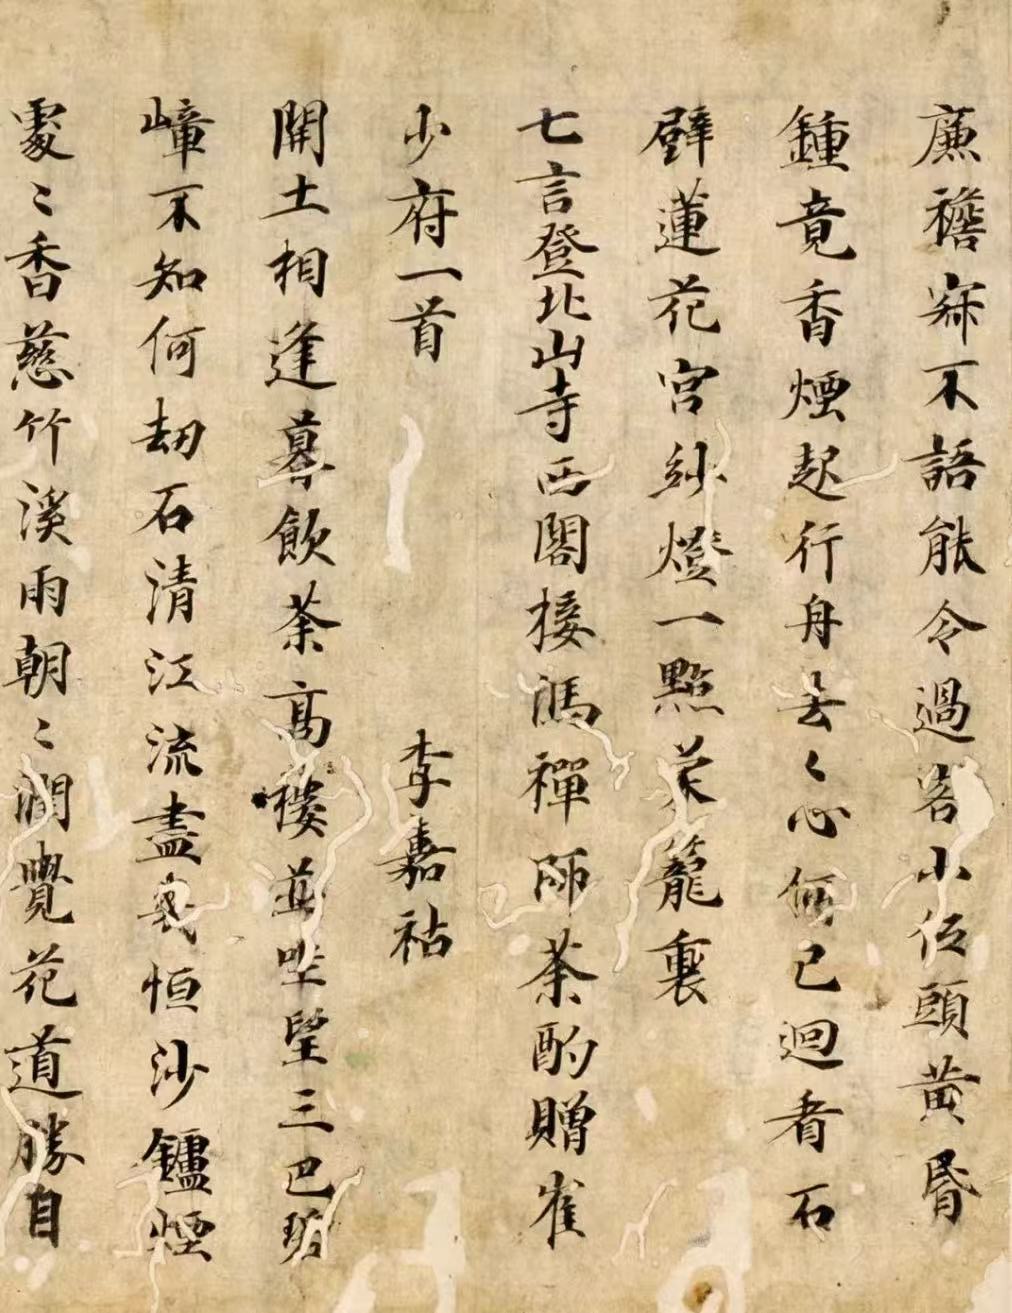 廉襜寐不語能令過客小低頭黃昏
鍾竟香煙起行舟去〻心何已迴看石
壁蓮花宮紗燈一點朱籠裏
七言登北山寺西閣接馮禪師茶酌贈崔
少府一首 李嘉祐
開土相逢暮飲茶高樓並坐望三巴碧
嶂不知何劫石清江流盡幾恒沙鑪煙
處〻香慈竹溪雨朝〻潤覺花道勝自